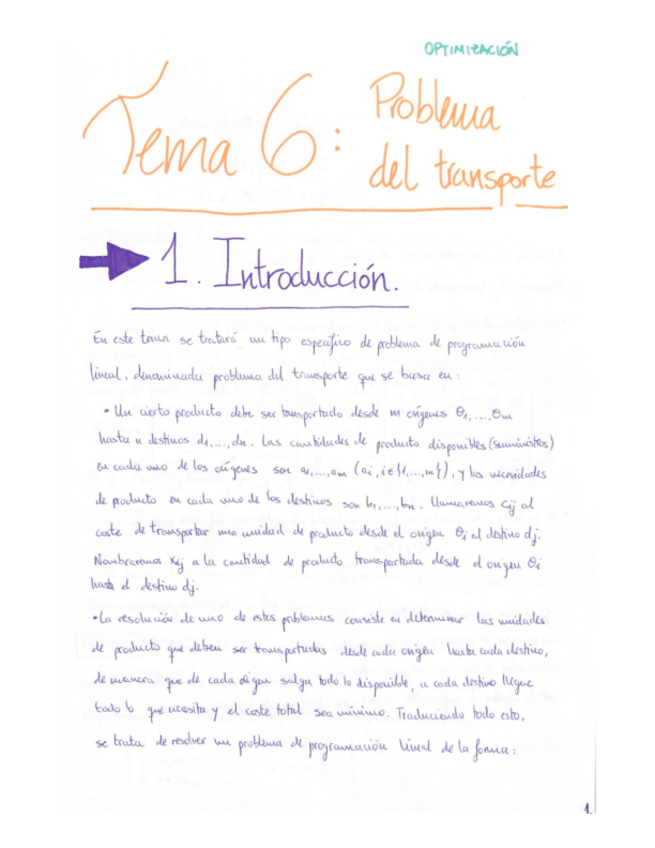 OPTIMIZACIÓN
Tema 6: Problema
del transporte
1. Introducción.
En este tema se tratará un tipo específico de problema de programación
lineal, denominada problema del transporte que se basa en:
• Un cierto producto debe ser transportado desde m orígenes θ1,...,θm
hasta n destinos d1,...,dn. Las cantidades de producto disponibles (suministros)
en cada uno de los orígenes son a1,...,am (ai, i∈{1,...,m}), y las necesidades
de producto en cada uno de los destinos son b1,...,bn. Llamaremos cij al
coste de transportar una unidad de producto desde el origen θi al destino dj.
Nombraremos xij a la cantidad de producto transportada desde el origen θi
hasta el destino dj.
• La resolución de uno de estos problemas consiste en determinar las unidades
de producto que deben ser transportadas desde cada origen hasta cada destino,
de manera que de cada origen salga todo lo disponible, a cada destino llegue
todo lo que necesita y el coste total sea mínimo. Traduciendo todo esto,
se trata de resolver un problema de programación lineal de la forma:
1.